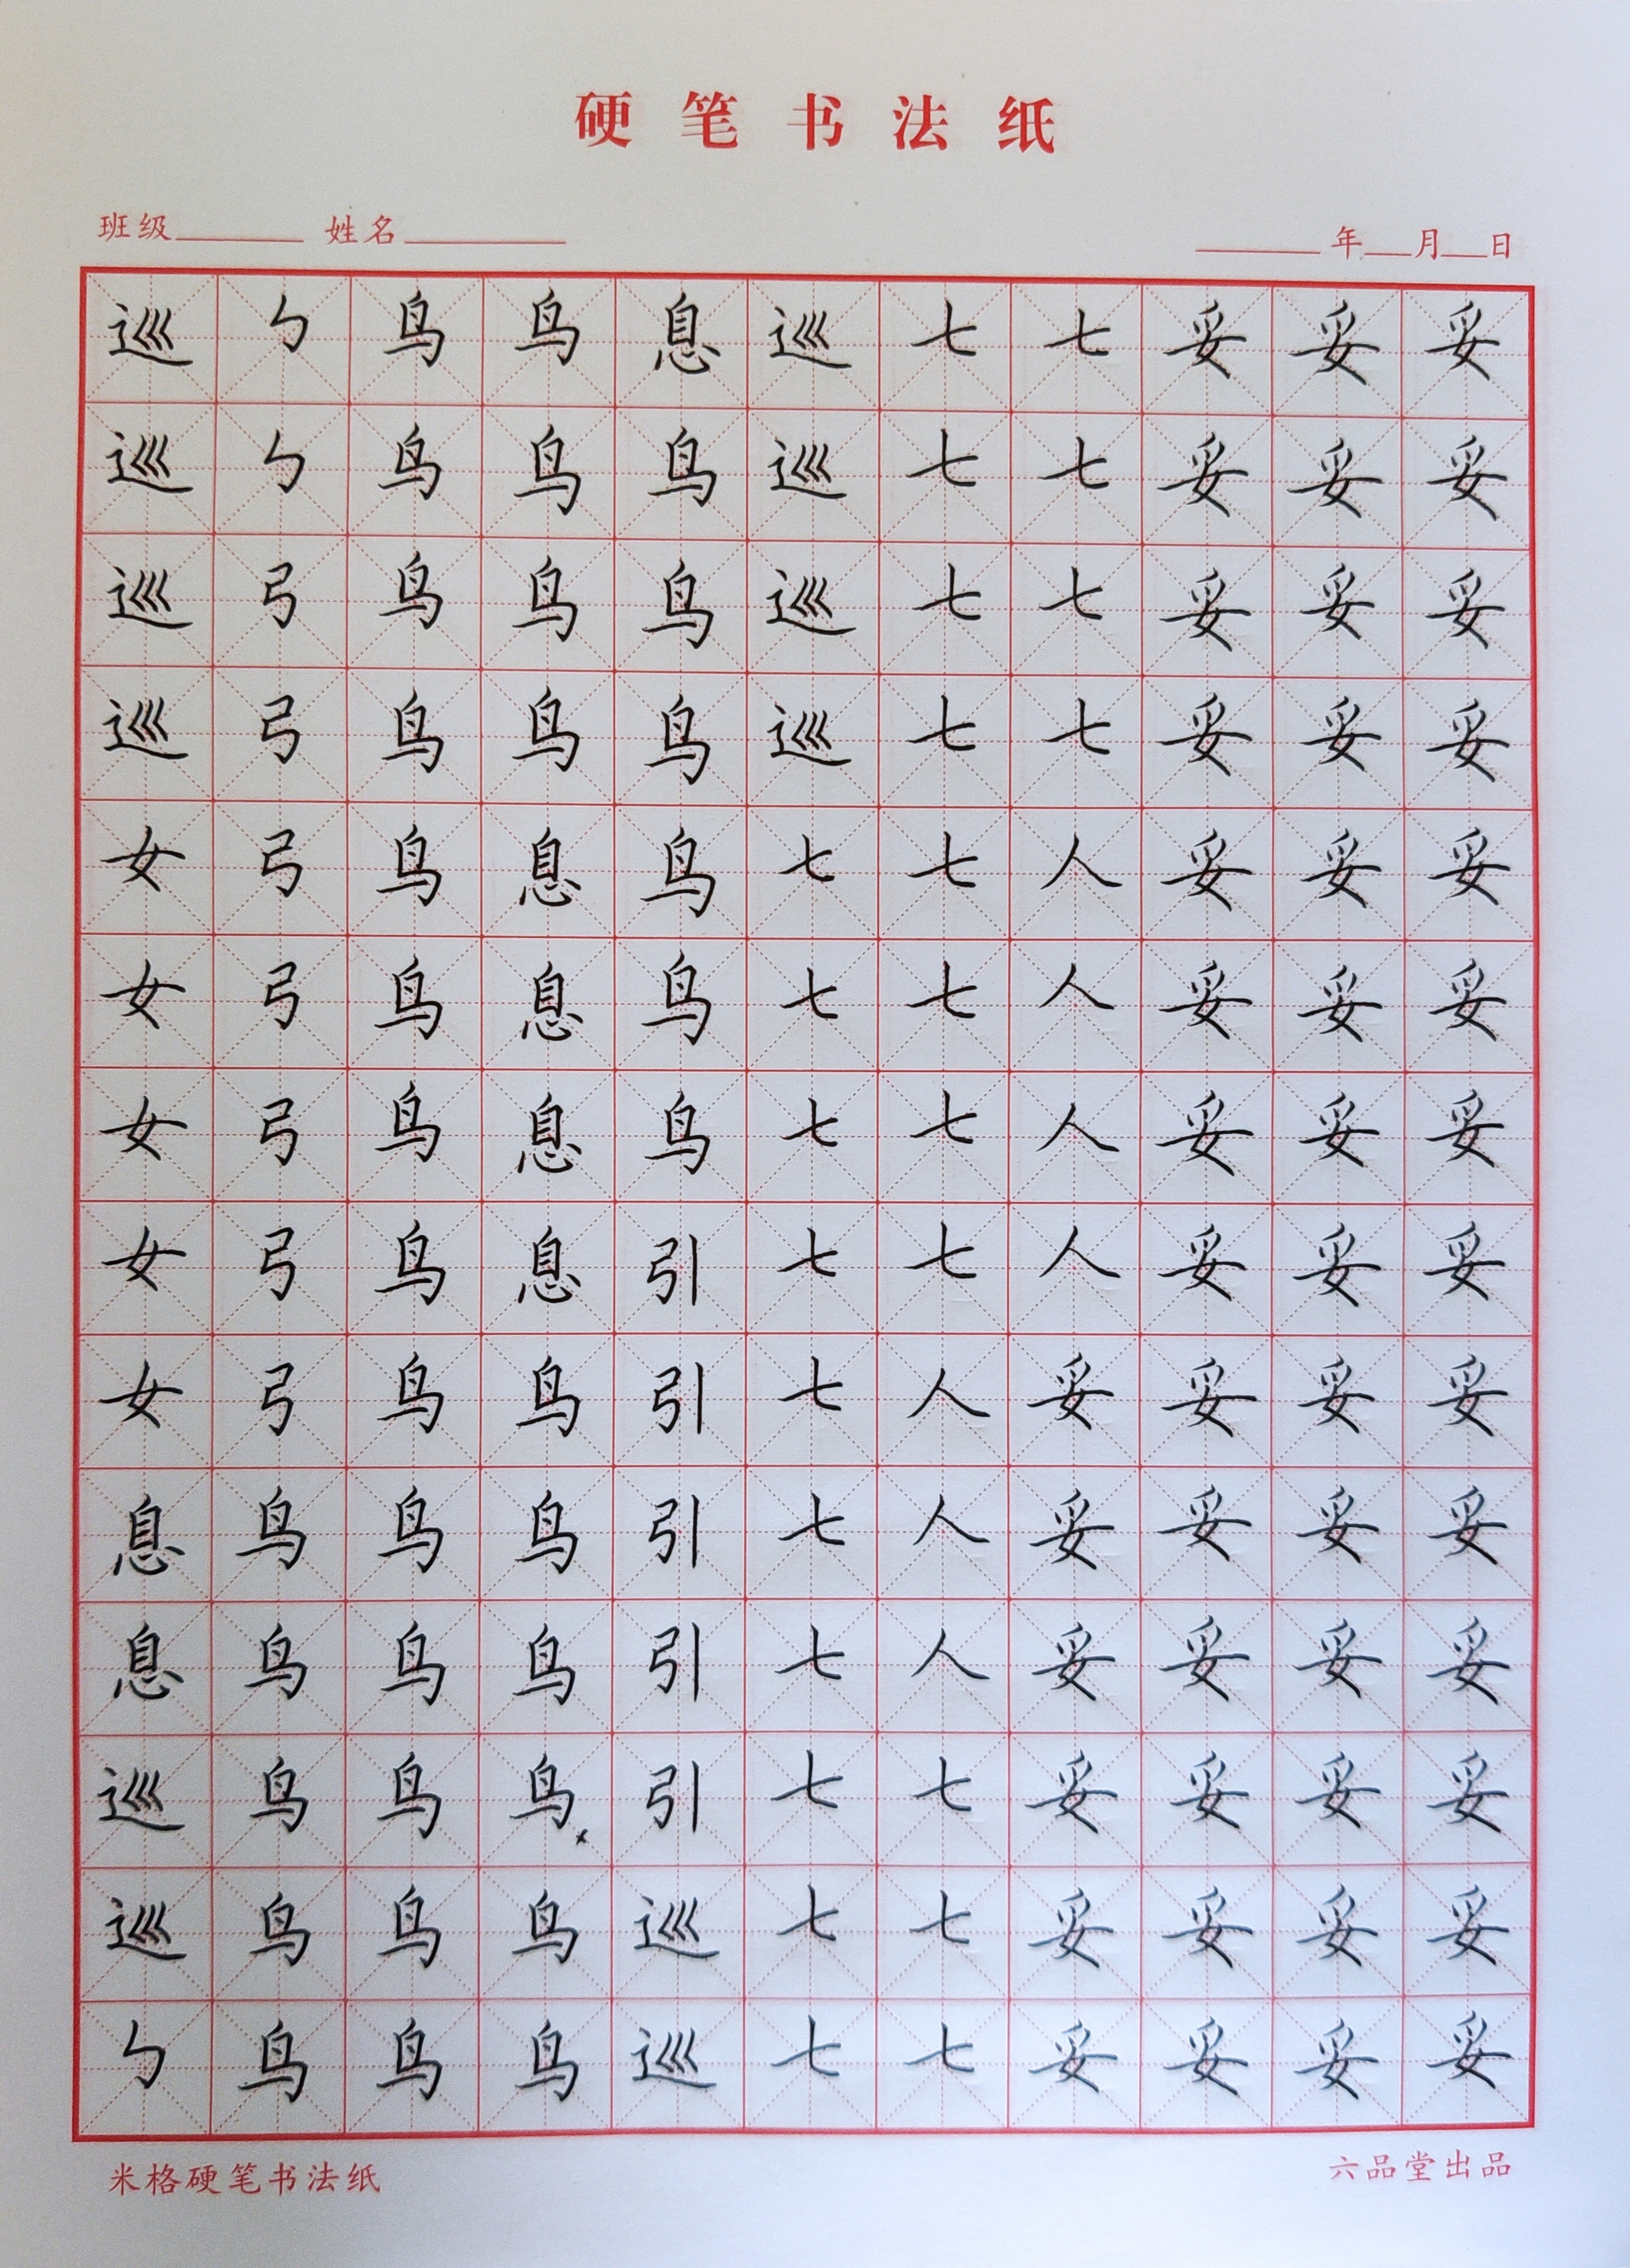 硬笔书法纸
班级 姓名 年 月 日
巡 ㄣ 鸟 鸟 息 巡 七 七 妥 妥 妥
巡 ㄣ 鸟 鸟 鸟 巡 七 七 妥 妥 妥
巡 弓 鸟 鸟 鸟 巡 七 七 妥 妥 妥
巡 弓 鸟 鸟 鸟 巡 七 七 妥 妥 妥
女 弓 鸟 息 鸟 七 七 人 妥 妥 妥
女 弓 鸟 息 鸟 七 七 人 妥 妥 妥
女 弓 鸟 息 鸟 七 七 人 妥 妥 妥
女 弓 鸟 息 引 七 七 人 妥 妥 妥
女 弓 鸟 鸟 引 七 人 妥 妥 妥 妥
息 鸟 鸟 鸟 引 七 人 妥 妥 妥 妥
息 鸟 鸟 鸟 引 七 人 妥 妥 妥 妥
巡 鸟 鸟 鸟 引 七 七 妥 妥 妥 妥
巡 鸟 鸟 鸟 巡 七 七 妥 妥 妥 妥
ㄣ 鸟 鸟 鸟 巡 七 七 妥 妥 妥 妥
米格硬笔书法纸 六品堂出品